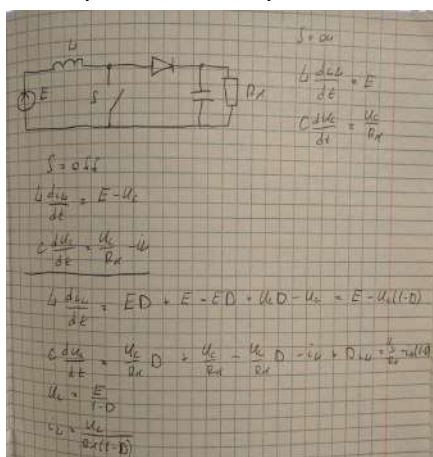 L₁
E
S
Rн
S = on
L₁ di_L₁/dt = E
C du_c/dt = u_c/Rн
S = off
L₁ di_L₁/dt = E - u_c
C du_c/dt = u_c/Rн - i_L₁
L₁ di_L₁/dt = ED + E - ED + u_cD - u_c = E - u_c(1-D)
C du_c/dt = u_c/Rн D + u_c/Rн - u_c/Rн D - i_L₁ + D i_L₁ = u_c/Rн - i_L₁(1-D)
u_c = E/(1-D)
i_L = u_c/(Rн(1-D))